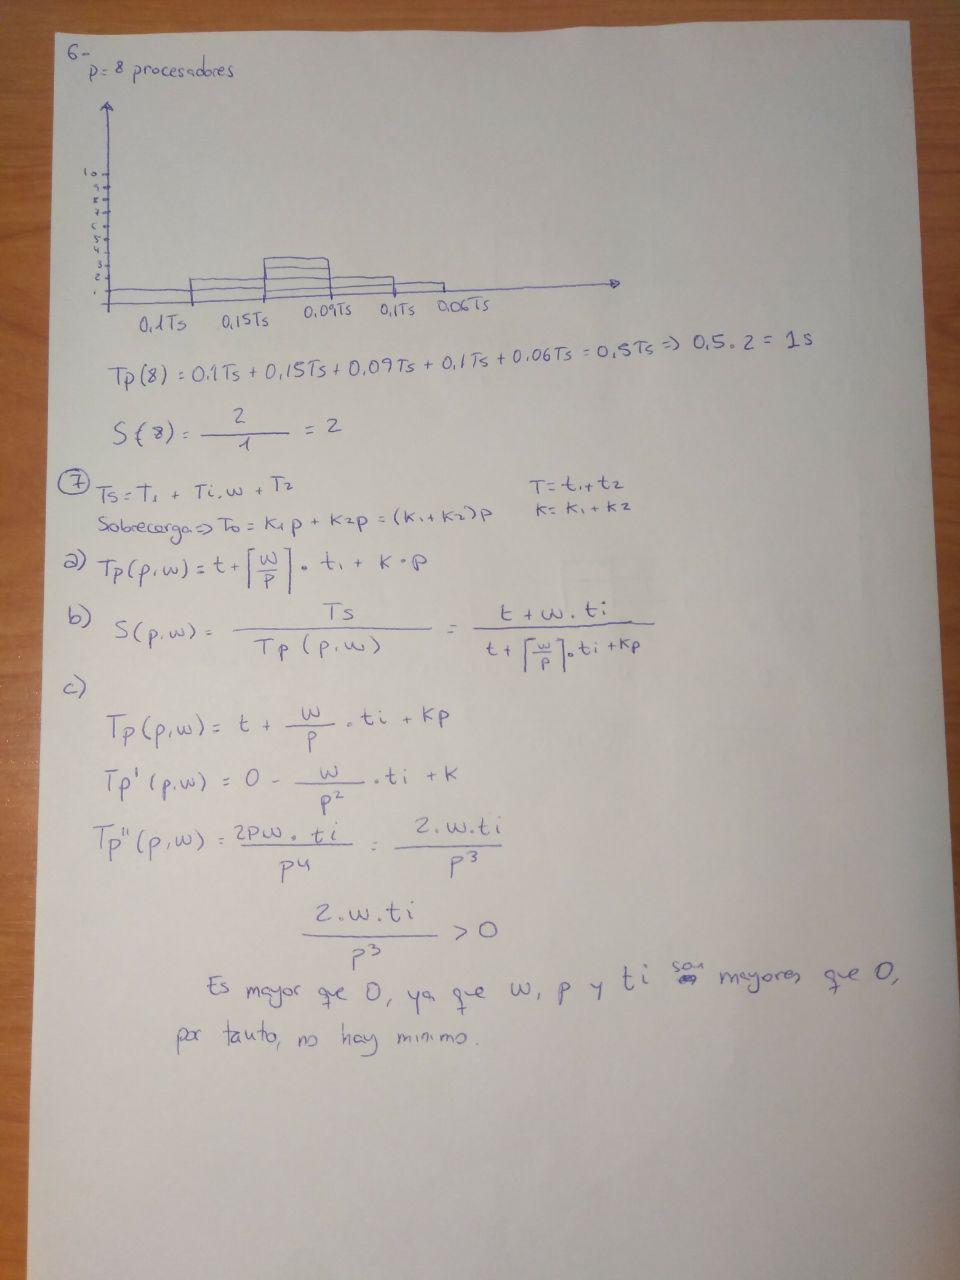 6-
p= 8 procesadores
10
9
8
7
6
5
4
3
2
1
0,1Ts 0,15Ts 0.09Ts 0,1Ts 0,06Ts
Tp(8) = 0.1Ts + 0,15Ts + 0,09Ts + 0,1Ts + 0.06Ts = 0,5Ts => 0,5. 2 = 1s
S(8) = 2/1 = 2
7 Ts = T1 + Ti.w + T2 T = t1 + t2
Sobrecarga => To = K1p + K2p = (K1+K2)p K = K1 + K2
a) Tp(p,w) = t + ⌈w/p⌉ . ti + K . p
b) S(p,w) = Ts / Tp(p,w) = t + w. ti / t + ⌈w/p⌉. ti + Kp
c)
Tp(p,w) = t + w/p . ti + Kp
Tp'(p,w) = 0 - w/p² . ti + K
Tp''(p,w) = 2pw . ti / p4 = 2.w.ti / p³
2.w.ti / p³ > 0
Es mayor que 0, ya que w, p y ti son mayores que 0,
por tanto, no hay minimo.